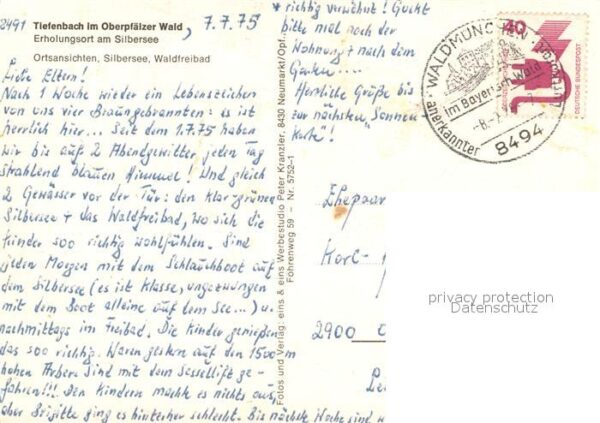 2491 Tiefenbach im Oberpfälzer Wald, 7.7.75
Erholungsort am Silbersee
Ortsansichten, Silbersee, Waldfreibad
Liebe Eltern!
Nach 1 Woche wieder ein Lebenszeichen
von uns vier Braungebrannten: es ist
herrlich hier... Seit dem 1.7.75 haben
wir bis auf 2 Abendgewitter jeden Tag
strahlend blauen Himmel! Und gleich
2 Gewässer vor der Tür: den klargrünen
Silbersee + das Waldfreibad, wo sich die
Kinder soo richtig wohlfühlen. Sind
jeden Morgen mit dem Schlauchboot auf
dem Silbersee (es ist Klasse, ungezwungen
mit dem Boot alleine auf dem See...) u.
nachmittags im Freibad. Die Kinder genießen
das soo richtig. Waren gestern auf den 1500 m
hohen Arber. Sind mit dem Sessellift ge-
fahren!!! Den Kindern machte es nichts aus,
aber Brigitte ging es hinterher schlecht. Bis nächste Woche sind w
* richtig verwöhnt! Guckt
bitte mal nach der
Wohnung + nach dem
Garten....
Herzliche Grüße bis
zur nächsten "Sonnen-
karte"!
Fotos und Verlag: eins & eins Werbestudio Peter Kranzler, 8430 Neumarkt/Opf.
Föhrenweg 59 – Nr. 5752-1
WALDMÜNCHEN
im Bayerisch. Wald
anerkannter
8494
40
DEUTSCHE BUNDESPOST
Ehepaar
Karl-
2900
privacy protection
Datenschutz